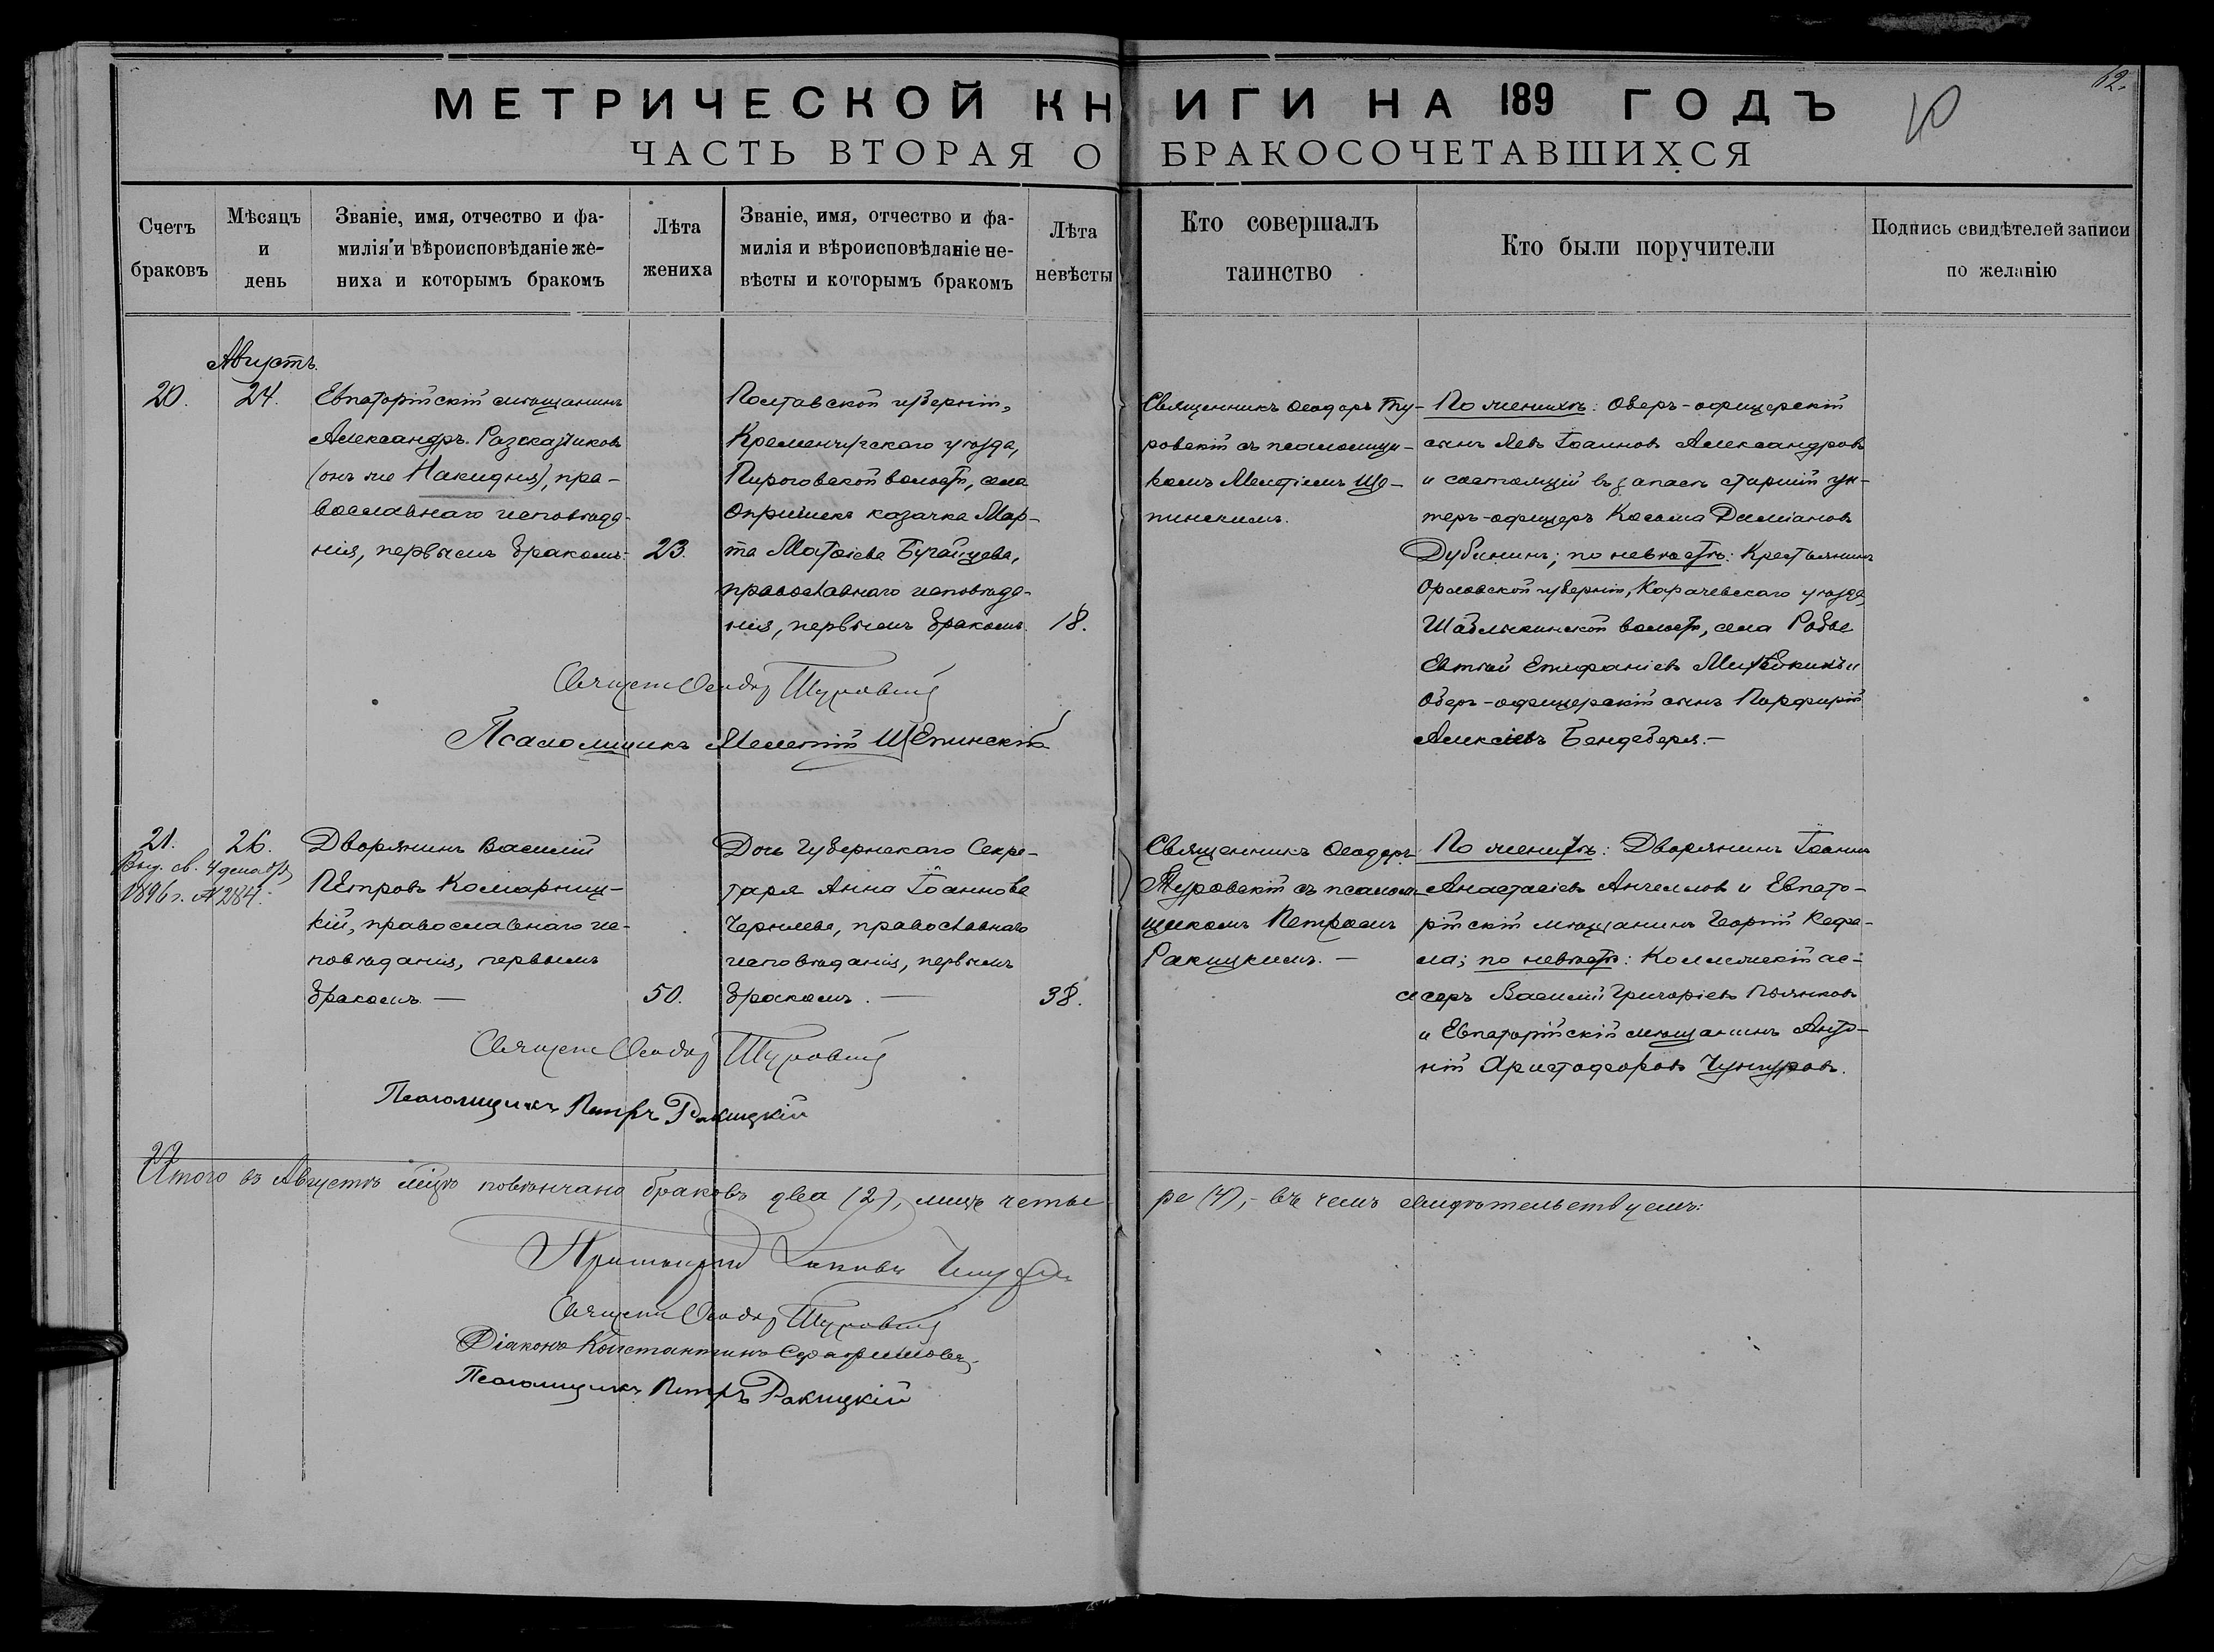 62.
10
МЕТРИЧЕСКОЙ КНИГИ НА 189 ГОДЪ
ЧАСТЬ ВТОРАЯ О БРАКОСОЧЕТАВШИХСЯ
Счетъ браковъ
Мѣсяцъ и день
Званіе, имя, отчество и фа-
милія и вѣроисповѣданіе же-
ниха и которымъ бракомъ
Лѣта жениха
Званіе, имя, отчество и фа-
милія и вѣроисповѣданіе не-
вѣсты и которымъ бракомъ
Лѣта невѣсты
Кто совершалъ
таинство
Кто были поручители
Подпись свидѣтелей записи
по желанію
Августъ.
20.
24.
Евпаторійскій мѣщанинъ
Александръ Разскащиков
(онъ же Накидня), пра-
вославнаго исповѣда-
нія, первымъ бракомъ.
23.
Полтавской губерніи,
Кременчугскаго уѣзда,
Пироговской волости, села
Опришекъ козачка Мар-
та Матѳіева Бугайцева,
православнаго исповѣда-
нія, первымъ бракомъ.
18.
Священникъ Ѳеодоръ Ту-
ровскій съ псаломщи-
комъ Мелетіемъ Ще-
пинскимъ.
По женихѣ: Оберъ-офицерскій
сынъ Левъ Іоаннов Александровъ
и состоящій въ запасѣ старшій ун-
теръ-офицеръ Косьма Даміановъ
Дубининъ; по невѣстѣ: Крестьянинъ
Орловской губерніи, Карачевскаго уѣзда,
Шаблыкинской волости, села Робье
Евтихій Епифаніевъ и
Оберъ-офицерскій сынъ Порфирій
Алексіевъ Бендеберя.—
Священ Ѳеодор Туровский
Псаломщикъ Мелетій Щепинскій
21.
26.
Выд. св. 4 декабр
1896 г. № 284.
Дворянинъ Василій
Петровъ Комарниц-
кій, православнаго ис-
повѣданія, первымъ
бракомъ.—
50.
Дочь Губернскаго Секре-
таря Анна Іоаннова
Чернеева, православнаго
исповѣданія, первымъ
бракомъ.—
38.
Священникъ Ѳеодоръ
Туровскій съ псалом-
щикомъ Петромъ
Ракицкимъ.—
По женихѣ: Дворянинъ Іоаннъ
Анастасіевъ Ангеловъ и Евпато-
рійскій мѣщанинъ Георгій Кефа-
ла; по невѣстѣ: Коллежскій ас-
сесоръ Василій Григоріевъ Пьянковъ
и Евпаторійскій мѣщанинъ Анто-
ній Аристодоровъ Чунгуровъ.
Священ Ѳеодор Туровский
Псаломщикъ Петръ Ракицкій
22
Итого въ Августѣ мѣцѣ повѣнчано браковъ два (2), лицъ четы-
ре (4),- въ чемъ свидѣтельствуемъ:
Протоіерей Іаковъ
Священ Ѳеодор Туровский
Діаконъ Константинъ Серафимовъ
Псаломщикъ Петръ Ракицкій